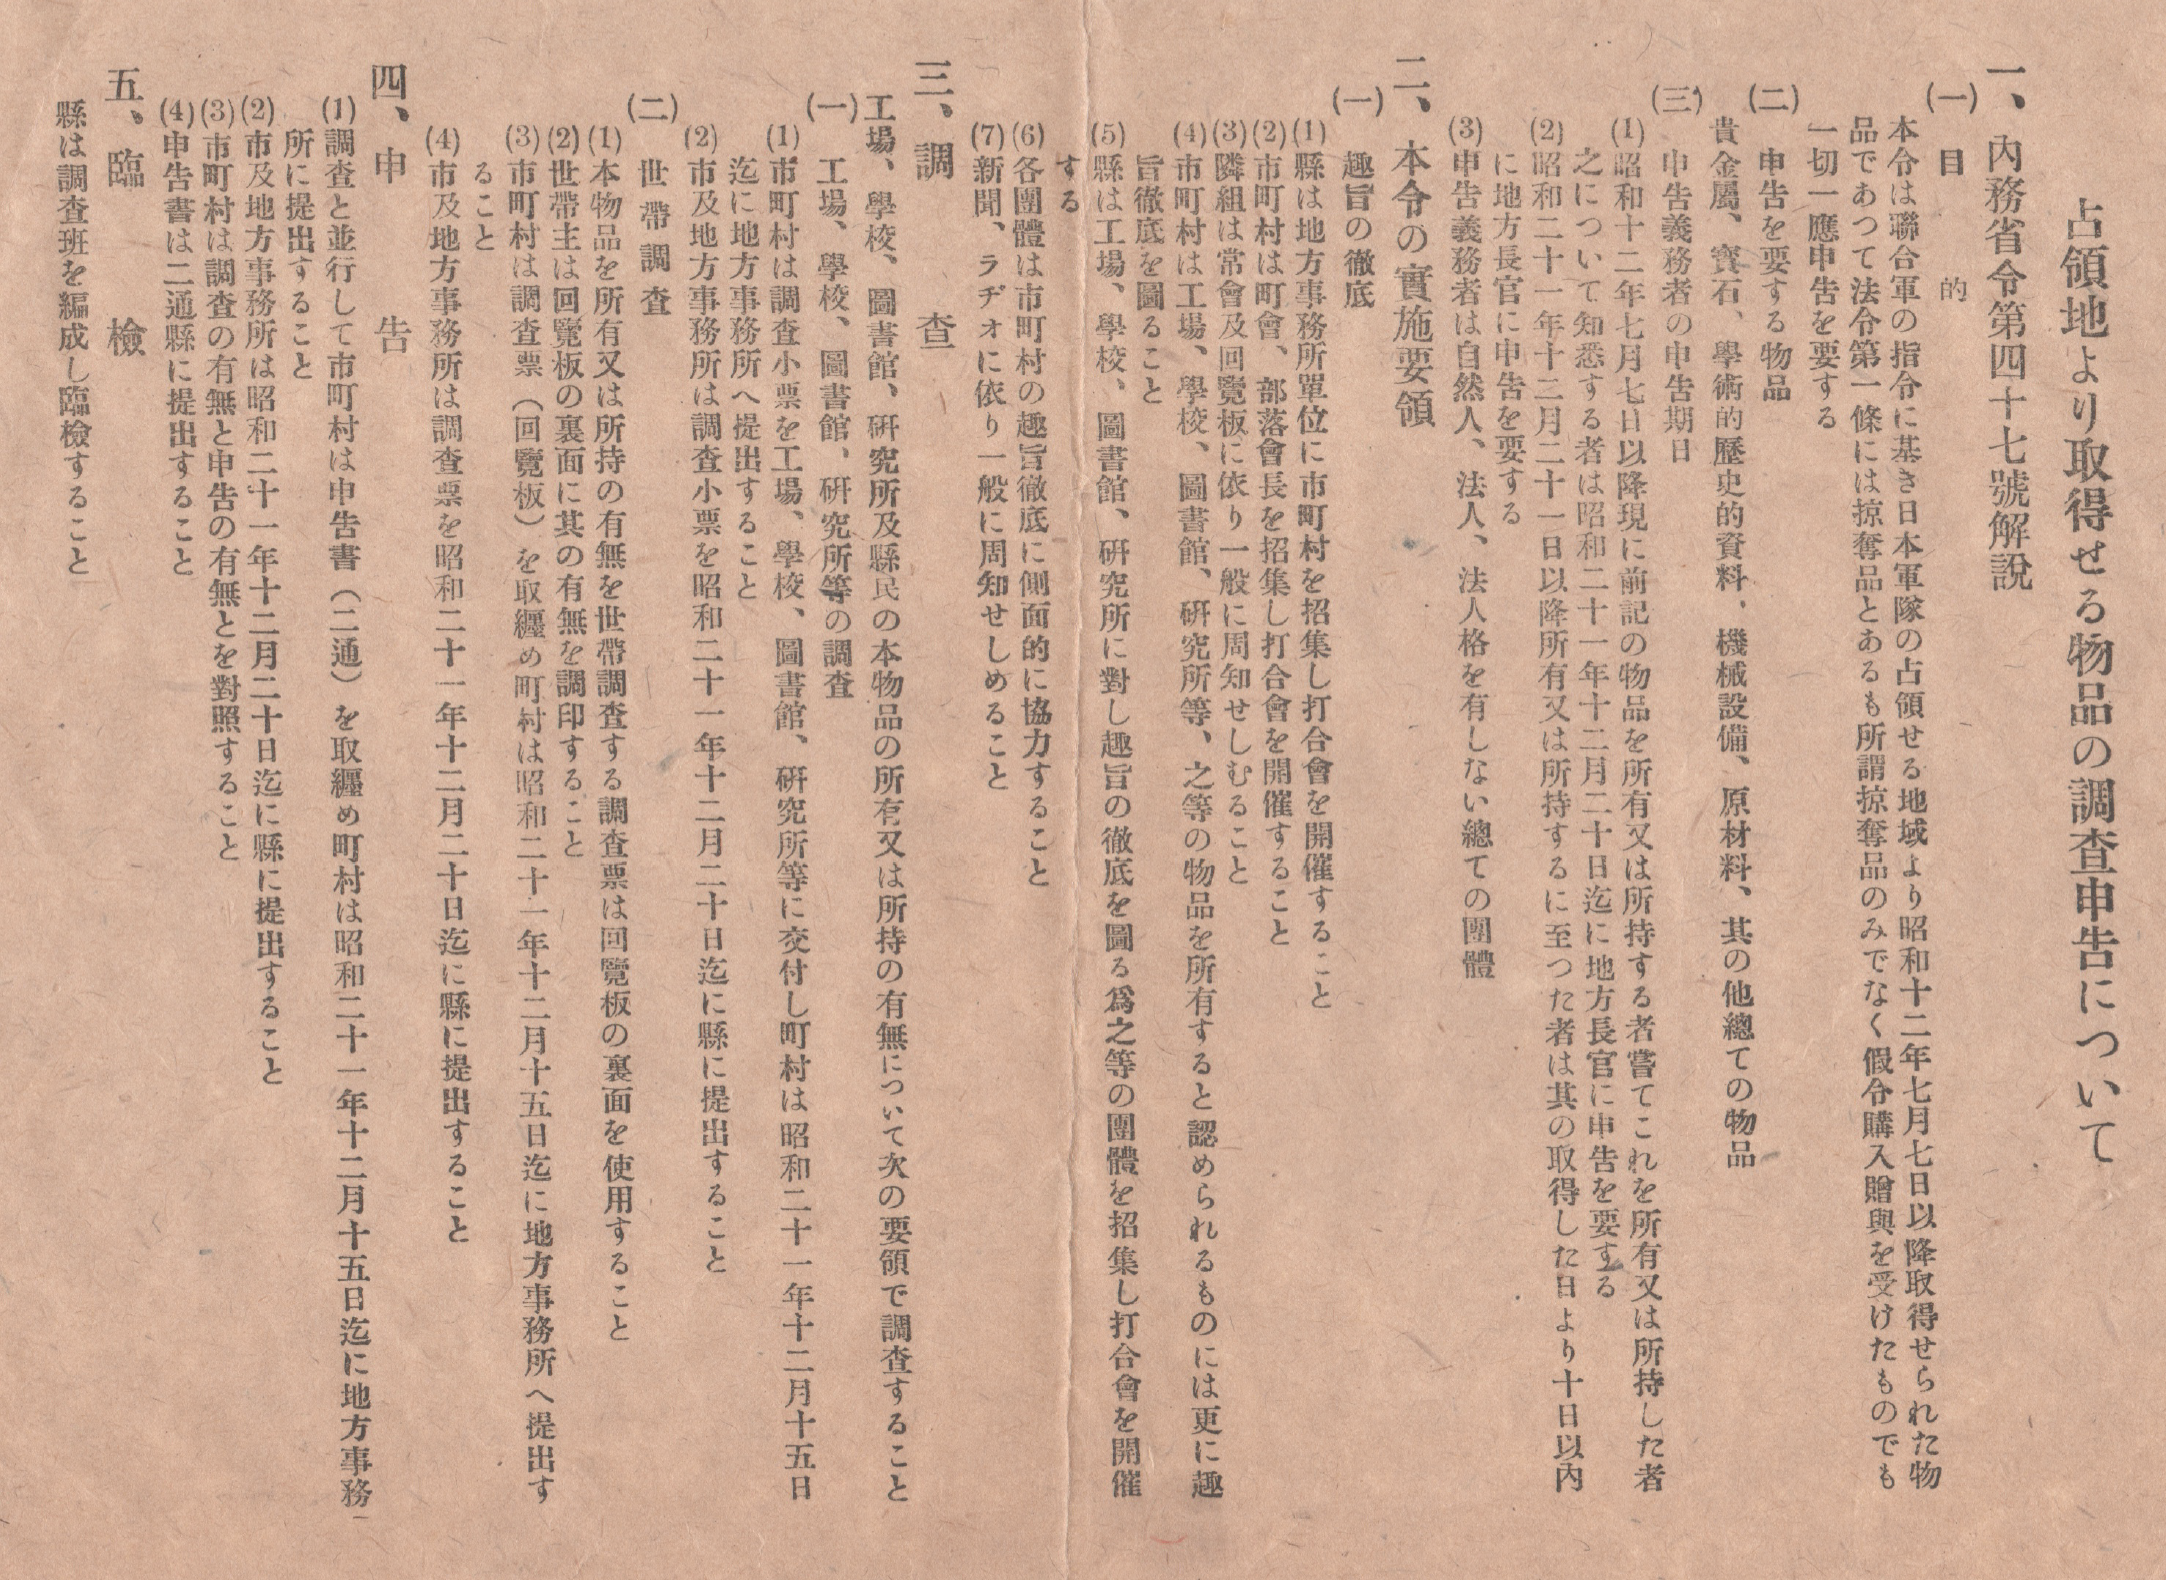 占領地より取得せる物品の調査申告について
一、內務省令第四十七號解説
(一) 目的
本令は聯合軍の指令に基き日本軍隊の占領せる地域より昭和十二年七月七日以降取得せられた物
品であつて法令第一條には掠奪品とあるも所謂掠奪品のみでなく假令購入贈與を受けたものでも
一切一應申告を要する
(二) 申告を要する物品
貴金屬、寳石、學術的歷史的資料、機械設備、原材料、其の他總ての物品
(三) 申告義務者の申告期日
(1) 昭和十二年七月七日以降現に前記の物品を所有又は所持する者嘗てこれを所有又は所持した者
之について知悉する者は昭和二十一年十二月二十日迄に地方長官に申告を要する
(2) 昭和二十一年十二月二十一日以降所有又は所持するに至つた者は其の取得した日より十日以內
に地方長官に申告を要する
(3) 申告義務者は自然人、法人、法人格を有しない總ての團體
二、本令の實施要領
(一) 趣旨の徹底
(1) 縣は地方事務所單位に市町村を招集し打合會を開催すること
(2) 市町村は町會、部落會長を招集し打合會を開催すること
(3) 隣組は常會及回覽板に依り一般に周知せしむること
(4) 市町村は工場、學校、圖書館、硏究所等、之等の物品を所有すると認められるものには更に趣
旨徹底を圖ること
(5) 縣は工場、學校、圖書館、硏究所に對し趣旨の徹底を圖る爲之等の團體を招集し打合會を開催
する
(6) 各團體は市町村の趣旨徹底に側面的に協力すること
(7) 新聞、ラヂオに依り一般に周知せしめること
三、調查
工場、學校、圖書館、硏究所及縣民の本物品の所有又は所持の有無について次の要領で調查すること
(一) 工場、學校、圖書館、硏究所等の調査
(1) 市町村は調査小票を工場、學校、圖書館、硏究所等に交付し町村は昭和二十一年十二月十五日
迄に地方事務所へ提出すること
(2) 市及地方事務所は調査小票を昭和二十一年十二月二十日迄に縣に提出すること
(二) 世帶調査
(1) 本物品を所有又は所持の有無を世帶調査する調査票は回覽板の裏面を使用すること
(2) 世帶主は回覽板の裏面に其の有無を調印すること
(3) 市町村は調査票（回覽板）を取纒め町村は昭和二十一年十二月十五日迄に地方事務所へ提出す
ること
(4) 市及地方事務所は調査票を昭和二十一年十二月二十日迄に縣に提出すること
四、申告
(1) 調査と並行して市町村は申告書（二通）を取纒め町村は昭和二十一年十二月十五日迄に地方事務
所に提出すること
(2) 市及地方事務所は昭和二十一年十二月二十日迄に縣に提出すること
(3) 市町村は調査の有無と申告の有無とを對照すること
(4) 申告書は二通縣に提出すること
五、臨檢
縣は調査班を編成し臨檢すること